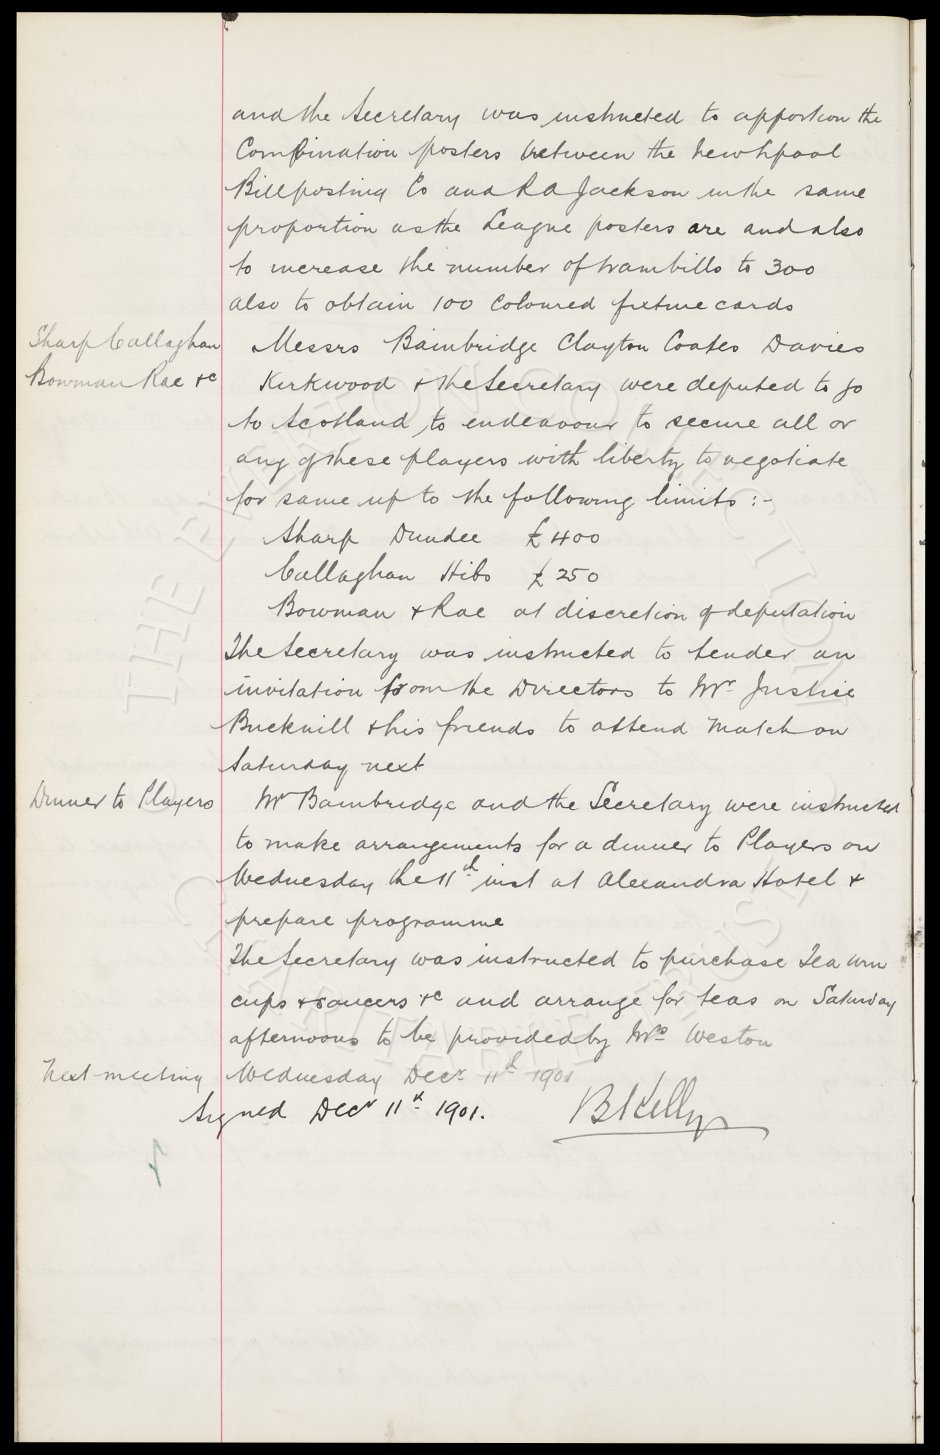 and the Secretary was instructed to apportion the
Combination posters between the New Lpool
Billposting Co and R A Jackson in the same
proportion as the League posters are and also
to increase the number of trambills to 300
also to obtain 100 coloured fixture cards
Sharp Callaghan
Bowman Rae &c
Messrs Bainbridge Clayton Coates Davies
Kirkwood & the Secretary were deputed to go
to Scotland to endeavour to secure all or
any of these players with liberty to negotiate
for same up to the following limits :-
Sharp Dundee £400
Callaghan Hibs £250
Bowman & Rae at discretion of deputation
The Secretary was instructed to tender an
invitation from the Directors to Mr Justice
Bucknill & his friends to attend match on
Saturday next
Dinner to Players
Mr Bainbridge and the Secretary were instructed
to make arrangements for a dinner to Players on
Wednesday the 11th inst at Alexandra Hotel &
prepare programme
The Secretary was instructed to purchase Tea urn
cups & saucers &c and arrange for teas on Saturday
afternoons to be provided by Mrs Weston
Next meeting Wednesday Decr 11th 1901
Signed Decr 11th 1901. B Kelly